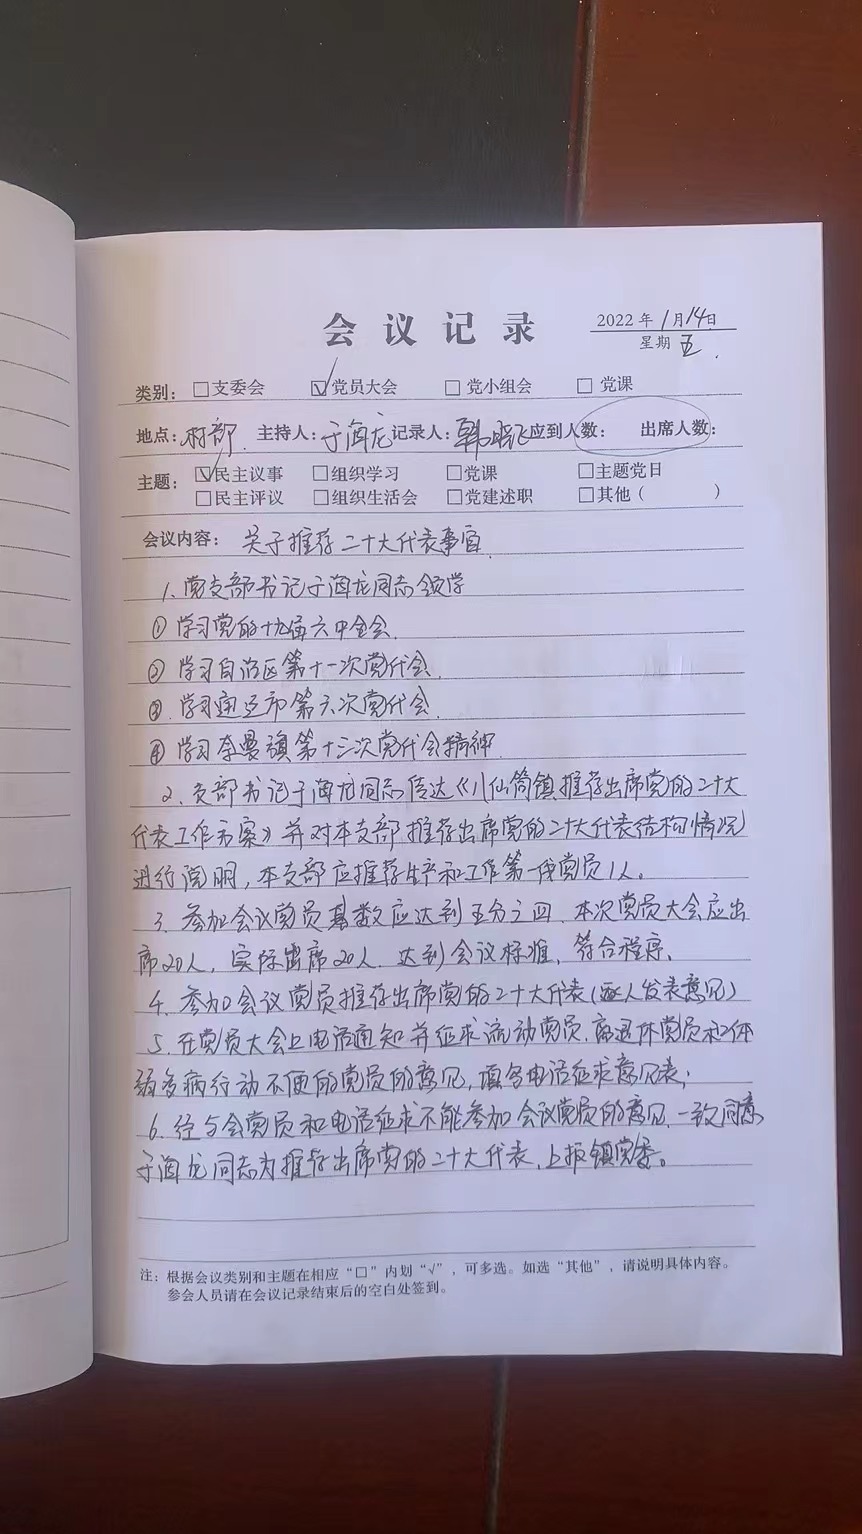 会议记录
2022年1月14日
星期五.
类别: □支委会 ☑党员大会 □党小组会 □党课
地点:村部. 主持人:于海龙记录人:韩晓飞应到人数: 出席人数:
主题: ☑民主议事 □组织学习 □党课 □主题党日
□民主评议 □组织生活会 □党建述职 □其他( )
会议内容: 关于推荐二十大代表事宜.
1.党支部书记于海龙同志领学
①学习党的十九届六中全会.
②学习自治区第十一次党代会.
③.学习通辽市第六次党代会.
④学习奈曼旗第十三次党代会精神.
2.支部书记于海龙同志传达《八仙筒镇推荐出席党的二十大
代表工作方案》并对本支部推荐出席党的二十大代表结构情况
进行说明,本支部应推荐生产和工作第一线党员1人。
3.参加会议党员基数应达到五分之四.本次党员大会应出
席20人,实际出席20人.达到会议标准,符合程序.
4.参加会议党员推荐出席党的二十大代表(逐人发表意见)
5.在党员大会上电话通知并征求流动党员.离退休党员和体
弱多病行动不便的党员的意见,填写电话征求意见表;
6.经与会党员和电话征求不能参加会议党员的意见.一致同意
于海龙同志为推荐出席党的二十大代表.上报镇党委。
注:根据会议类别和主题在相应“□”内划“√”,可多选。如选“其他”,请说明具体内容。
参会人员请在会议记录结束后的空白处签到。